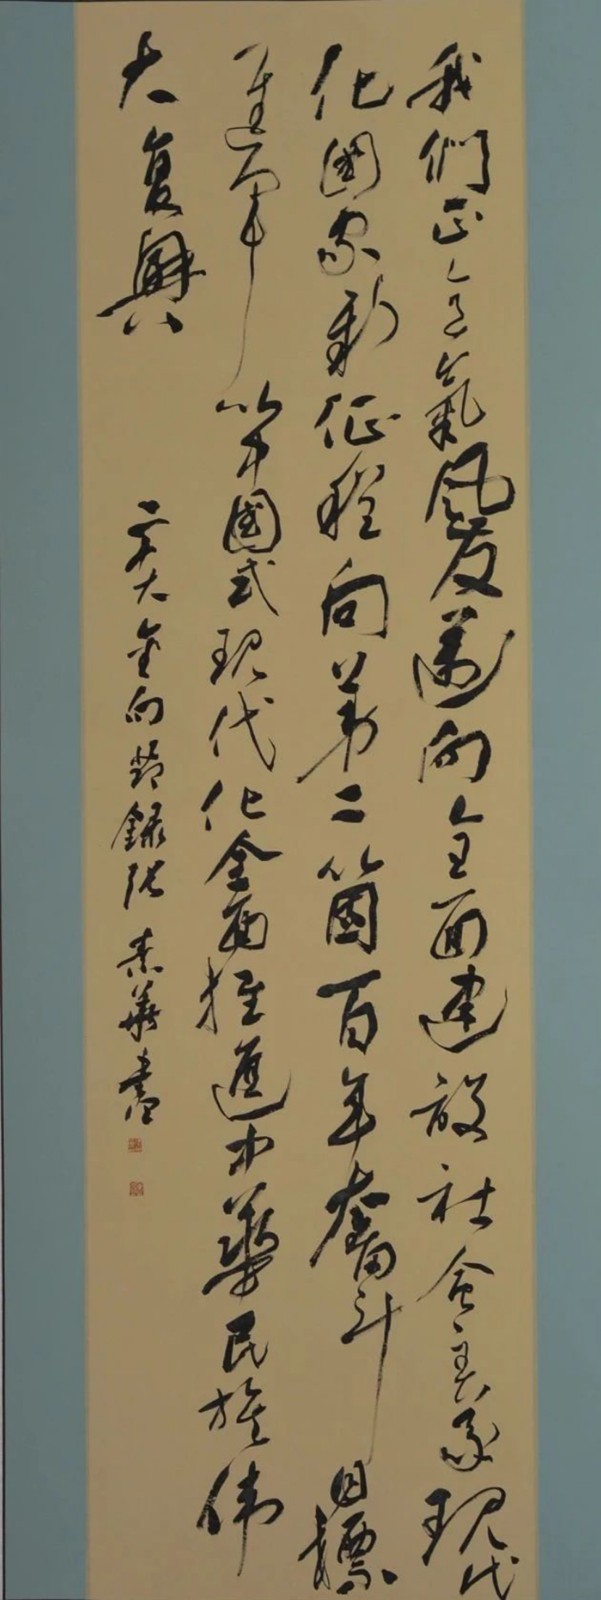 我們正意氣風发邁向全面建設社会主義現代
化國家新征程向第二箇百年奮斗目標
進軍以中國式現代化全面推進中華民族偉
大复興
二十大金句节錄張素華書